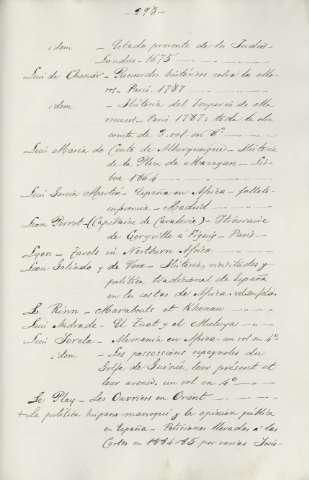 - 293 -
idem - Estado presente de los Judíos -
Londres - 1675
Luis de Chenier - Recuerdos históricos sobre los
París. 1787
idem - Historia del Imperio de Ma-
rruecos - París 1787
3 vol en 8º
Luis María do Couto de Albuquerque - Historia
de la Plaza de Mazagan - Lis-
boa 1864
Luis García Martín - España en Africa - folleto
imprenta - Madrid
Leon Perrot - (Capitaine de Cavalerie) - Itineraire
de Géryville à Figuig - Paris -
Lyon - Travels in Northern Africa
Leon Galindo y de Vera - Historia, vicisitudes y
política tradicional de España
en las costas de Africa
Le Rinn - Marabouts et Khouan
Luis Andrade - El Tuat y el Muluya
Luis Sorela - Alemania en Africa un vol en 4º
idem - Les possessions espagnoles du
Golfe de Guinée, leur présent et
leur avenir, un vol en 4º
Le Play - Les Ouvriers en Orient
+ La política hispano-marroquí y la opinión pública
en España - Peticiones llevadas a las
Cortes en 1884-85 por varias Socie-